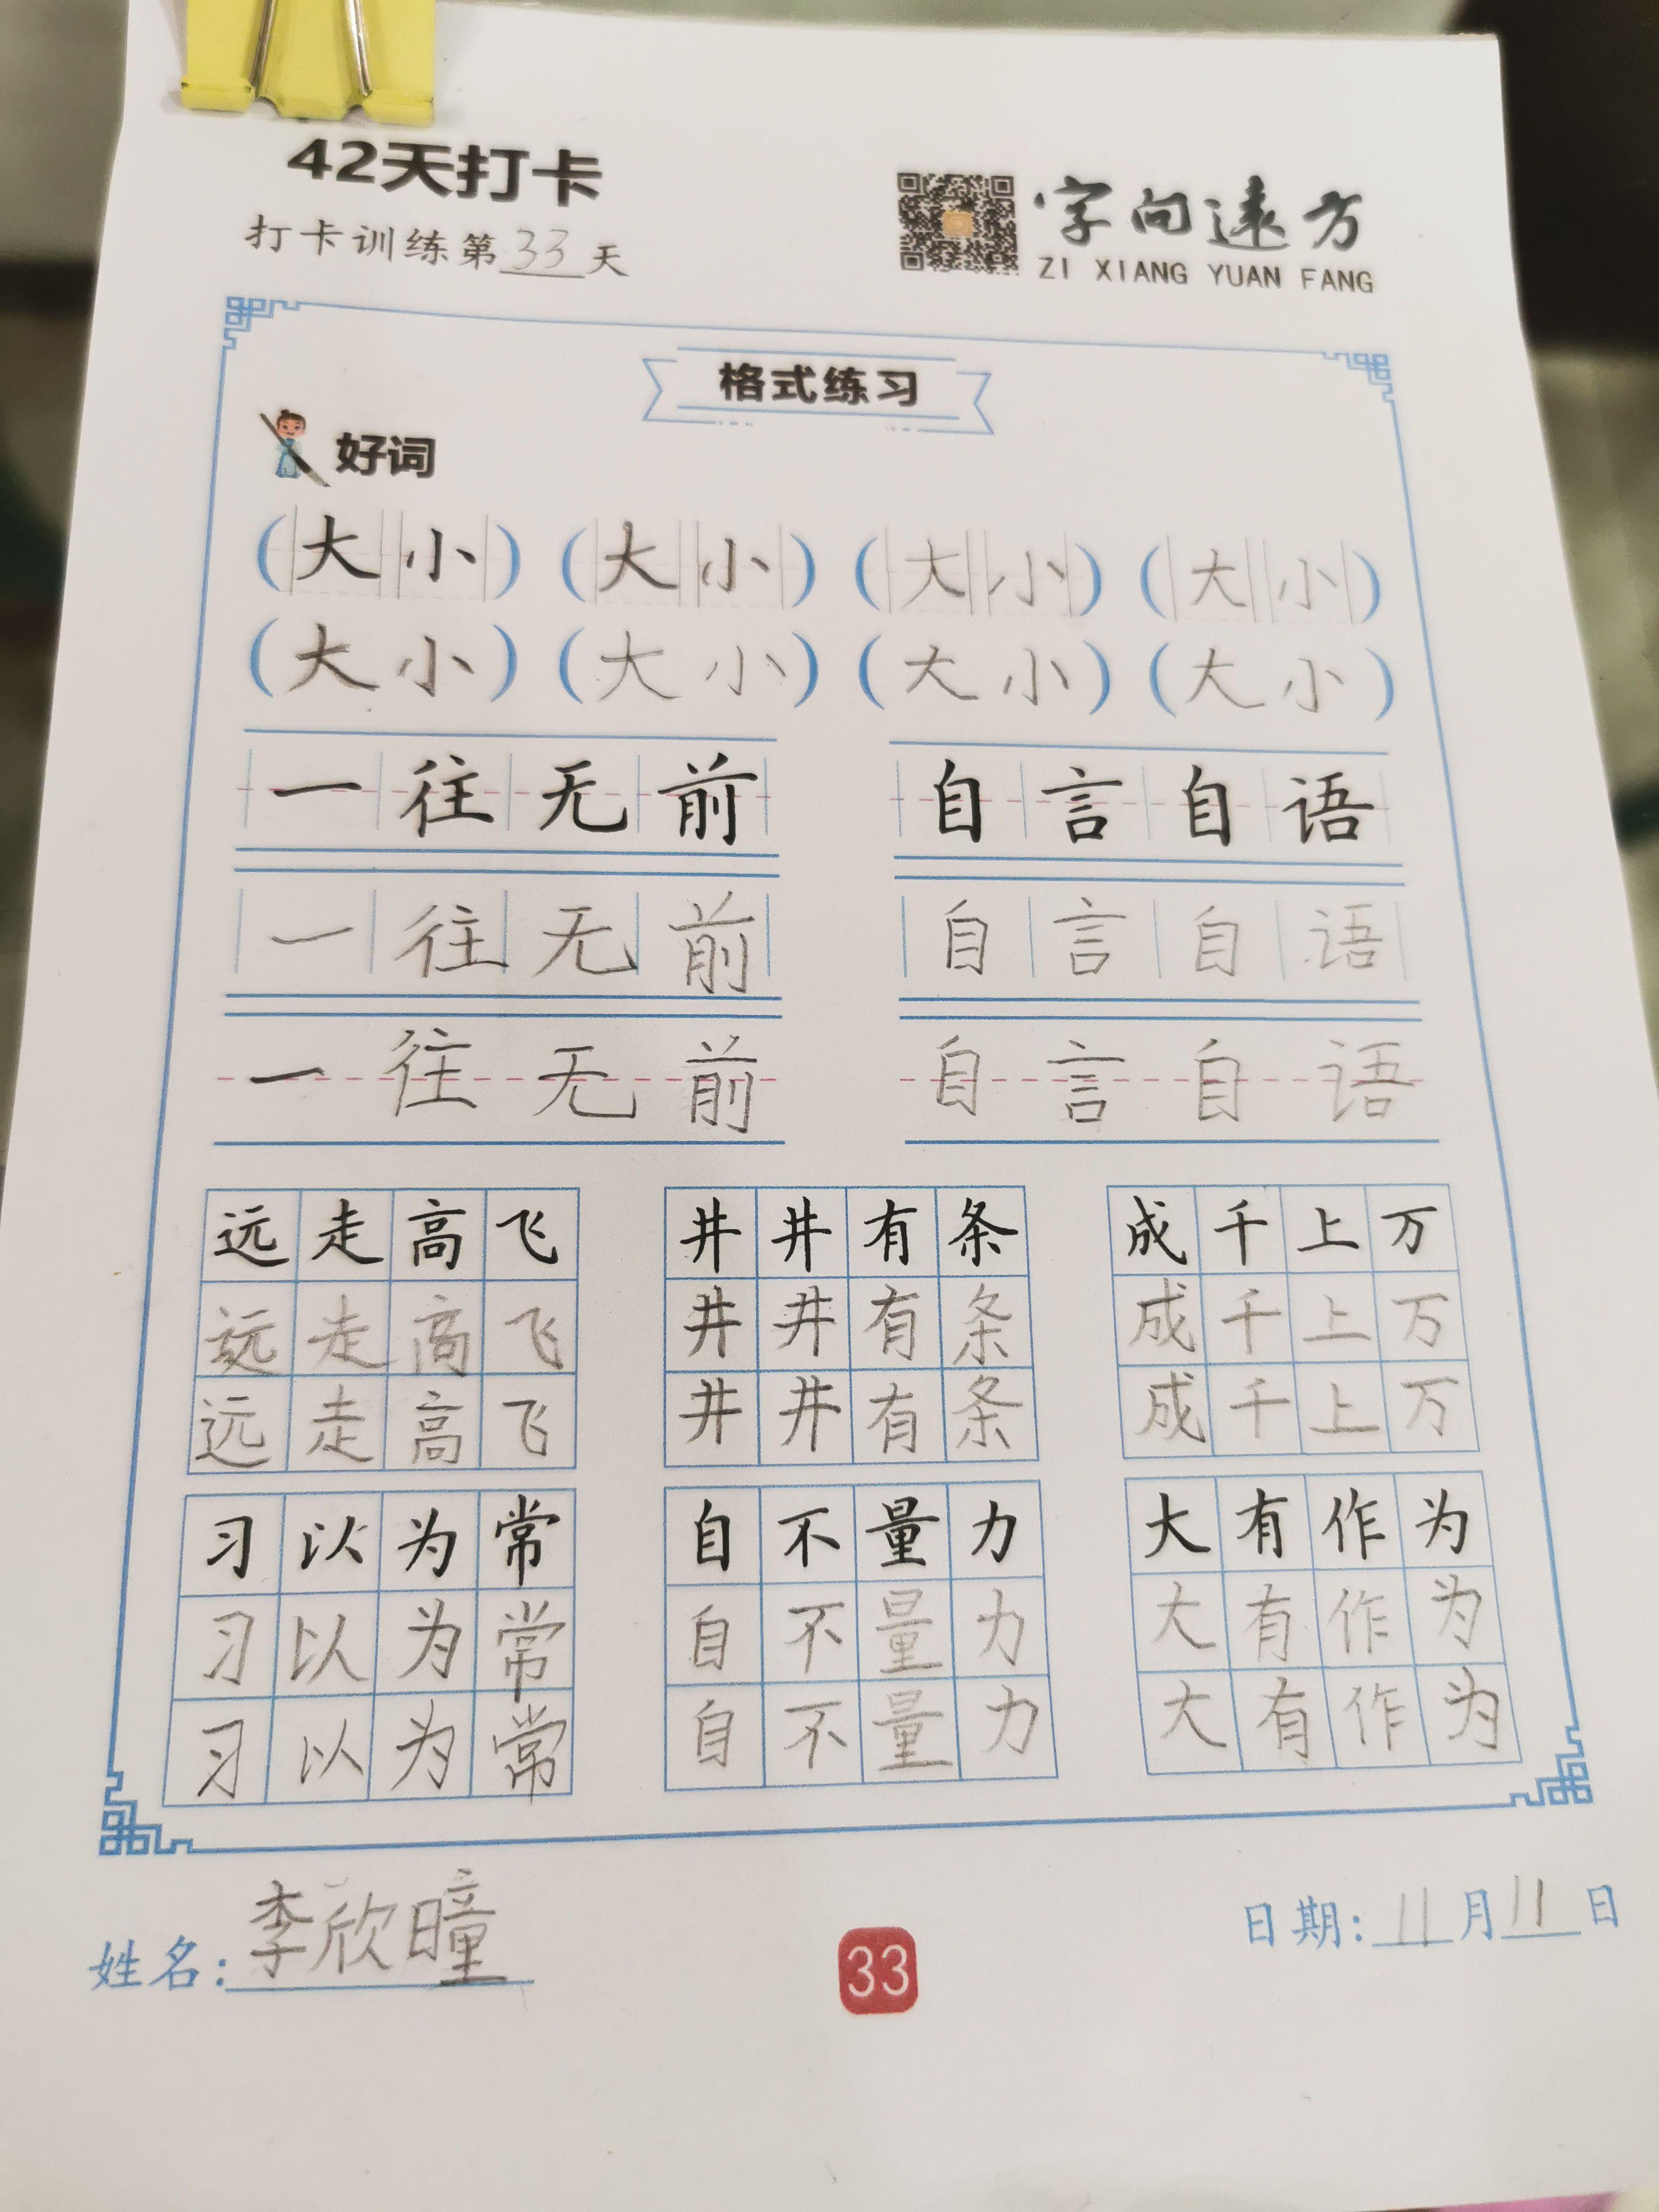 42天打卡
打卡训练第33天
字向遠方
ZI XIANG YUAN FANG
格式练习
好词
(大小) (大小) (大小) (大小)
(大小) (大小) (大小) (大小)
一往无前 自言自语
一往无前 自言自语
一往无前 自言自语
远走高飞 井井有条 成千上万
远走高飞 井井有条 成千上万
远走高飞 井井有条 成千上万
习以为常 自不量力 大有作为
习以为常 自不量力 大有作为
习以为常 自不量力 大有作为
姓名:李欣曈
33
日期:11月11日